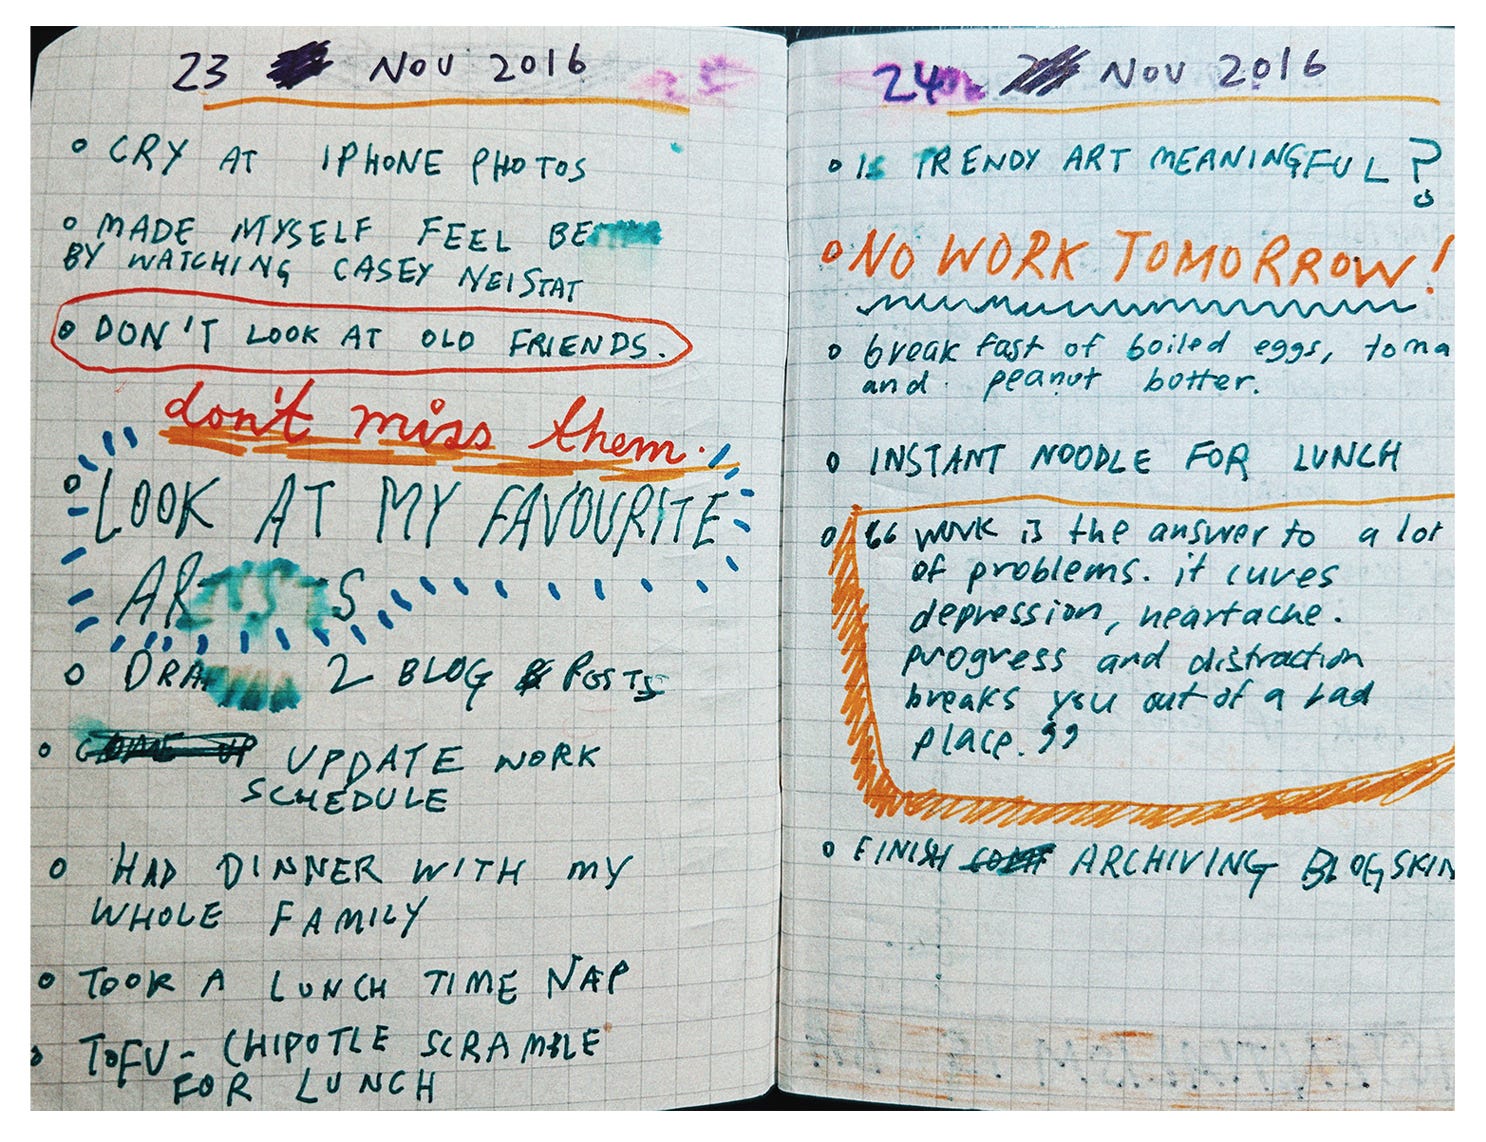 23 NOV 2016
• CRY AT IPHONE PHOTOS
• MADE MYSELF FEEL BE
BY WATCHING CASEY NEISTAT
• DON'T LOOK AT OLD FRIENDS.
don't miss them.
• LOOK AT MY FAVOURITE
ARTISTS
• DRA 2 BLOG POSTS
• COME UP UPDATE WORK
SCHEDULE
• HAD DINNER WITH MY
WHOLE FAMILY
• TOOK A LUNCH TIME NAP
• TOFU - CHIPOTLE SCRAMBLE
FOR LUNCH
24 NOV 2016
• IS TRENDY ART MEANINGFUL?
• NO WORK TOMORROW!
• breakfast of boiled eggs, toma
and peanut botter.
• INSTANT NOODLE FOR LUNCH
• “work is the answer to a lot
of problems. it cures
depression, heartache.
progress and distraction
breaks you out of a bad
place.”
• FINISH ARCHIVING BLOGSKIN